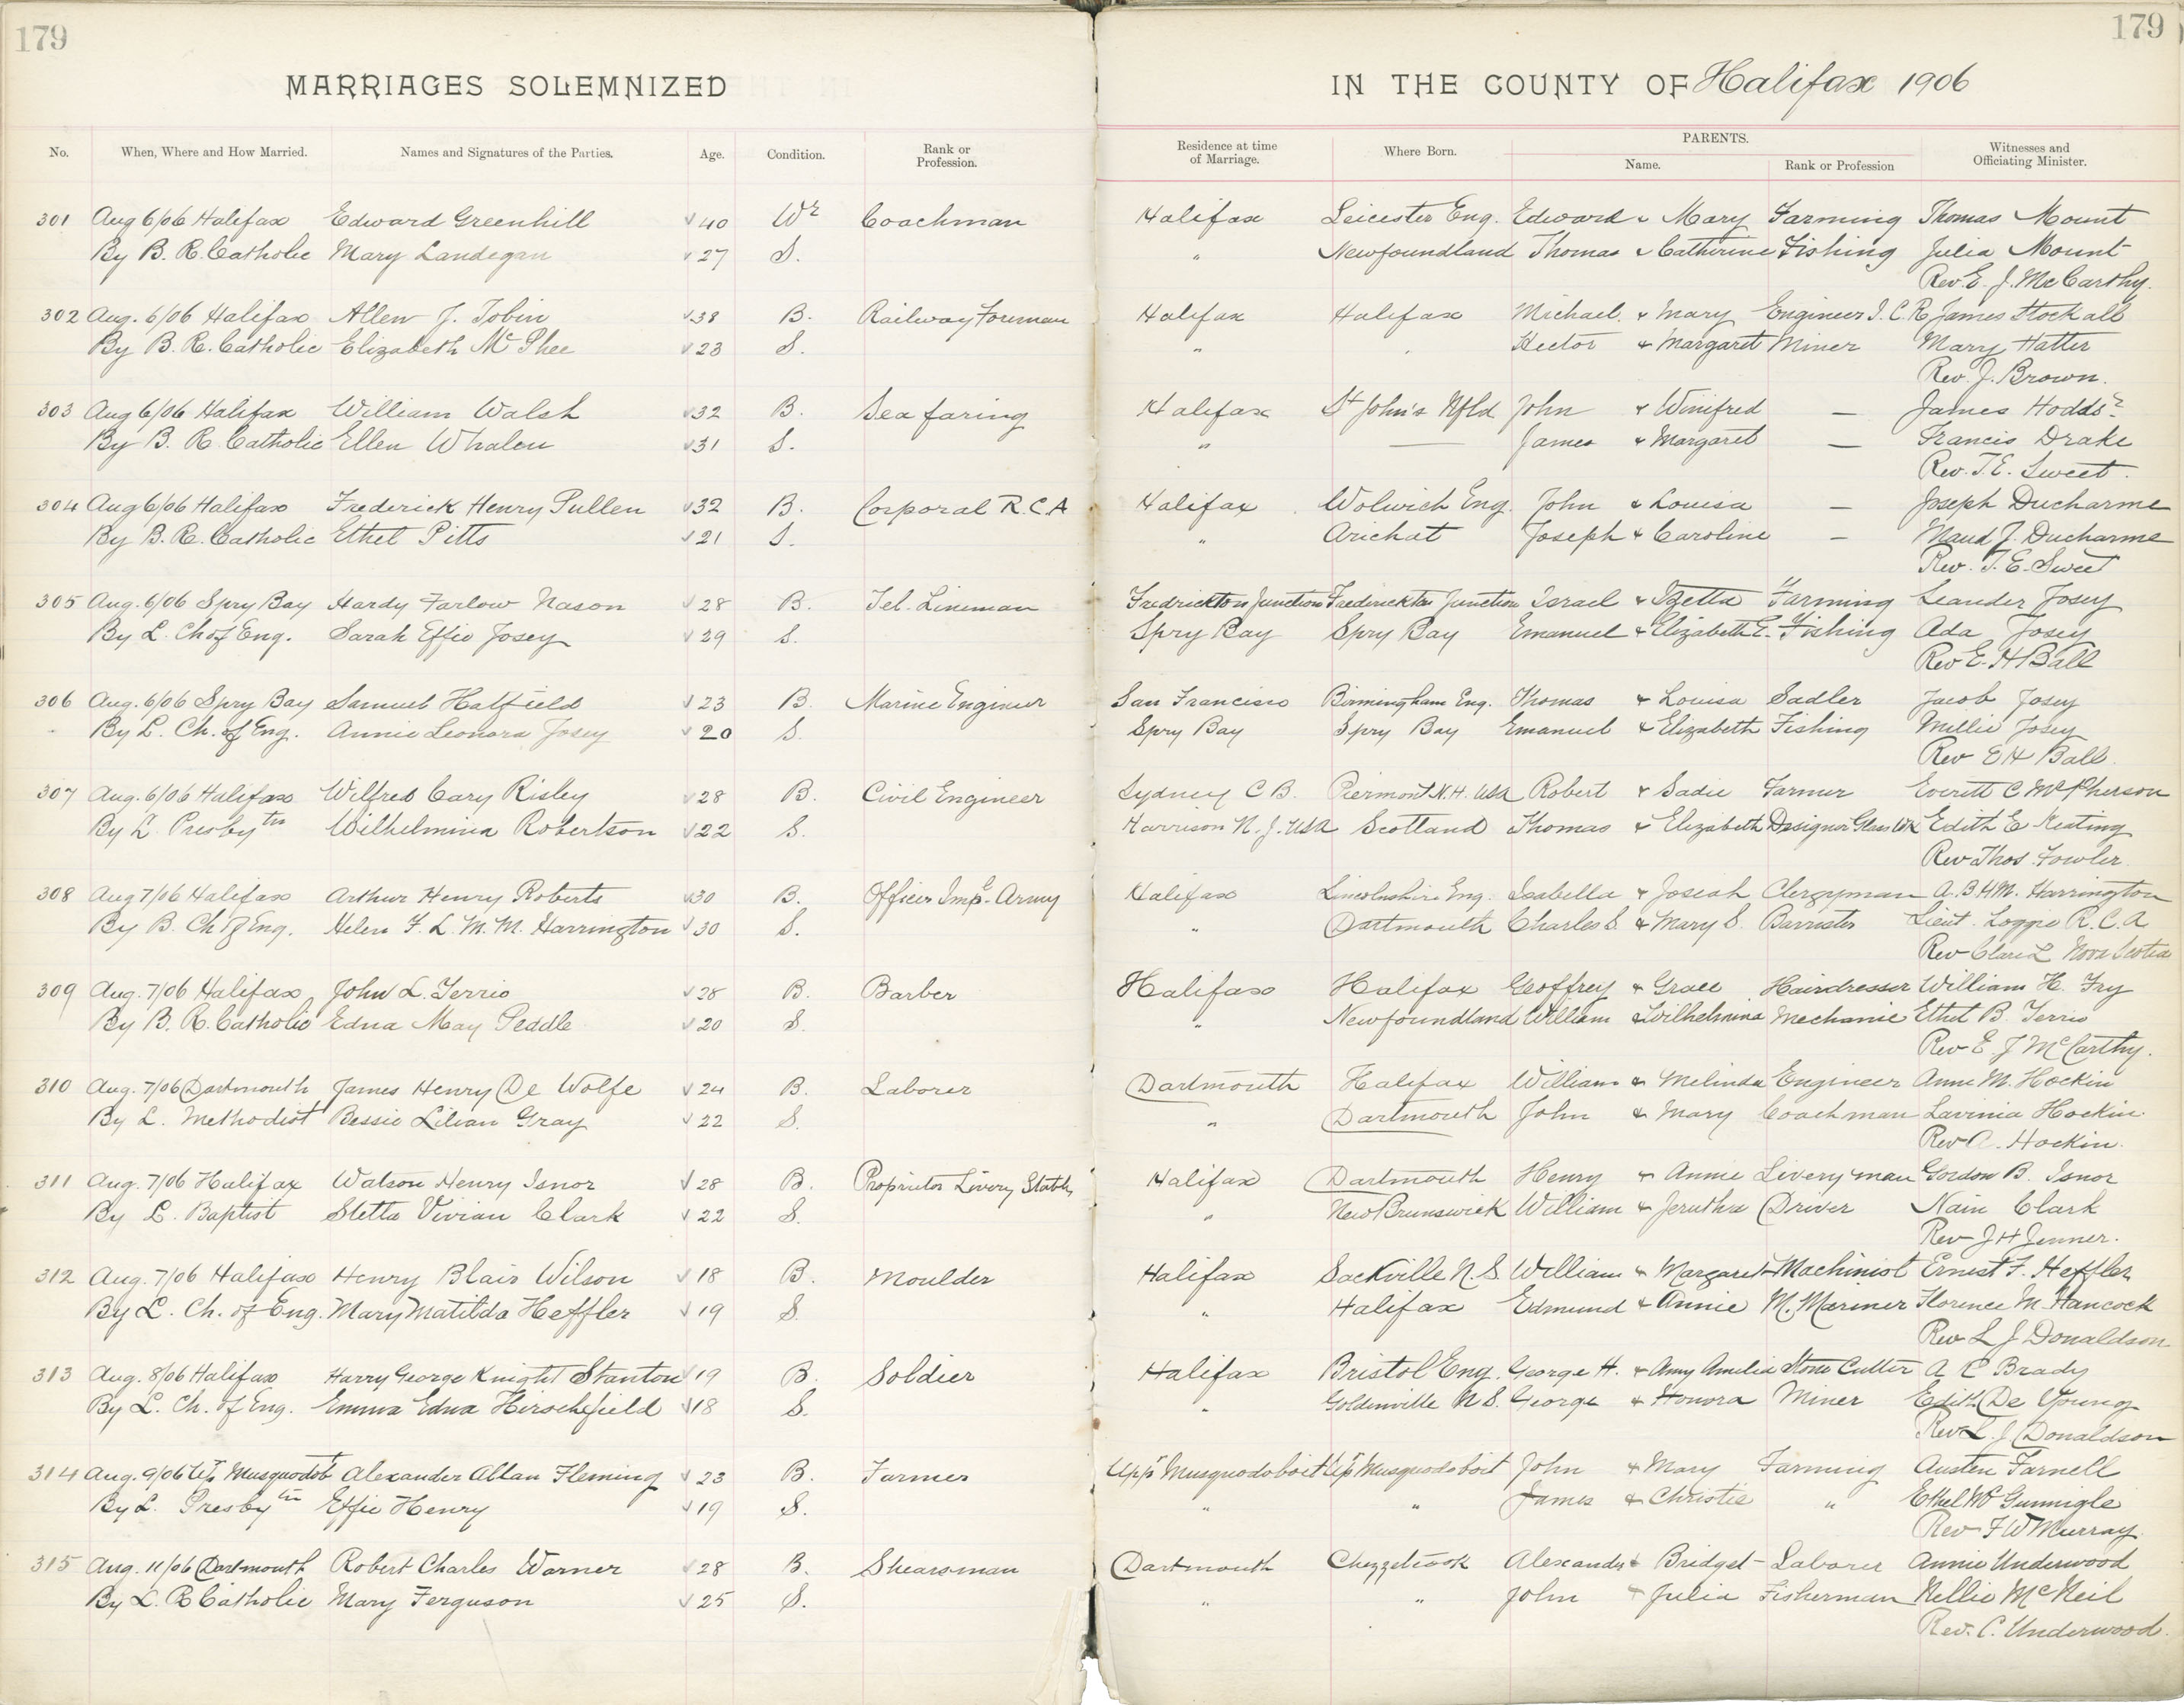 179
179
MARRIAGES SOLEMNIZED IN THE COUNTY OF Halifax 1906
No. When, Where and How Married. Names and Signatures of the Parties. Age. Condition. Rank or Profession. Residence at time of Marriage. Where Born. PARENTS. Name. Rank or Profession Witnesses and Officiating Minister.
301 Aug 6/06 Halifax Edward Greenhill √ 40 Wr Coachman Halifax Leicester Eng. Edward & Mary Farming Thomas Mount
By B. R. Catholic Mary Landegan √ 27 S. " Newfoundland Thomas & Catherine Fishing Julia Mount
Rev. E. J. McCarthy.
302 Aug. 6/06 Halifax Allen J. Tobin √ 38 B. Railway Foreman Halifax Halifax Michael & Mary Engineer I.C.R James Stockall
By B. R. Catholic Elizabeth McPhee √ 23 S. " Hector & Margaret Miner Mary Hatter
Rev. J. Brown.
303 Aug 6/06 Halifax William Walsh √ 32 B. Sea faring Halifax St John's Nfld John & Winifred — James Hodds?
By B. R. Catholic Ellen Whalen √ 31 S. " — James & Margaret — Francis Drake
Rev. T. E. Sweet.
304 Aug 6/06 Halifax Frederick Henry Pullen √ 32 B. Corporal R.C.A Halifax Wolwich Eng. John & Louisa — Joseph Ducharme
By B. R. Catholic Ethel Pitts √ 21 S. " Arichat Joseph & Caroline — Maud J. Ducharme
Rev. T. E. Sweet
305 Aug. 6/06 Spry Bay Hardy Farlow Nason √ 28 B. Tel. Lineman Fredrickton Junction Frederickton Junction Israel & Izetta Farming Leander Josey
By L. Ch of Eng. Sarah Effie Josey √ 29 S. Spry Bay Spry Bay Emanuel & Elizabeth E. Fishing Ada Josey
Rev E. H Ball
306 Aug. 6/06 Spry Bay Samuel Hatfield √ 23 B. Marine Engineer San Francisco Birmingham Eng. Thomas & Louisa Sadler Jacob Josey
By L. Ch. of Eng. Annie Leonora Josey √ 20 S. Spry Bay Spry Bay Emanuel & Elizabeth Fishing Millie Josey
Rev E H Ball.
307 Aug. 6/06 Halifax Wilfred Cary Risley √ 28 B. Civil Engineer Sydney C B. Piermont N.H. USA Robert & Sadie Farmer Everett C McPherson
By L. Presbytn Wilhelmina Robertson √ 22 S. Harrison N. J. USA Scotland Thomas & Elizabeth Designer Glass Wk Edith E Keating
Rev Thos. Fowler.
308 Aug 7/06 Halifax Arthur Henry Roberts √ 30 B. Officer Impl. Army Halifax Lincolnshire Eng. Isabella & Josiah Clergyman A. B. H M. Harrington
By B. Ch of Eng. Helen F. L. M. M. Harrington √ 30 S. " Dartmouth Charles S. & Mary S. Barrister Lieut. Loggie R.C.A.
Rev Clare L Nova Scotia
309 Aug. 7/06 Halifax John L. Terrio √ 28 B. Barber Halifax Halifax Geoffrey & Grace Hairdresser William H. Fry
By B. R. Catholic Edna May Peddle √ 20 S. " Newfoundland William & Wilhelmina Mechanic Ethel B. Terrio
Rev E J McCarthy.
310 Aug. 7/06 Dartmouth James Henry De Wolfe √ 24 B. Laborer Dartmouth Halifax William & Melinda Engineer Anne M. Hockin
By L. Methodist Bessie Lilian Gray √ 22 S. " Dartmouth John & Mary Coachman Lavinia Hockin.
Rev A. Hockin.
311 Aug. 7/06 Halifax Watson Henry Isnor √ 28 B. Proprietor Livery Stable Halifax Dartmouth Henry & Annie Livery man Gordon B. Isnor
By L. Baptist Stetta Vivian Clark √ 22 S. " New Brunswick William & Jerutha Driver Nain Clark
Rev J H Jenner.
312 Aug. 7/06 Halifax Henry Blair Wilson √ 18 B. Moulder Halifax Sackville N. S. William & Margaret Machinist Ernest F. Heffler
By L. Ch. of Eng. Mary Matilda Heffler √ 19 S. " Halifax Edmund & Annie M. Mariner Florence M. Hancock
Rev L J Donaldson
313 Aug. 8/06 Halifax Harry George Knight Stanton √ 19 B. Soldier Halifax Bristol Eng. George H. & Amy Amelia Stone Cutter A E Brady
By L. Ch. of Eng. Emma Edna Hirschfield √ 18 S. " Goldenville N S. George & Honora Miner Edith De Young
Rev L. J Donaldson
314 Aug. 9/06 Up. Musquodobt Alexander Allan Fleming √ 23 B. Farmer Uppr Musquodoboit Upr Musquodoboit John & Mary Farming Austen Farnell
By L. Presbytn Effie Henry √ 19 S. " " James & Christie " Ethel McGunnigle
Rev F W Murray.
315 Aug. 11/06 Dartmouth Robert Charles Warner √ 28 B. Shearsman Dartmouth Chezzetcook Alexander & Bridget Laborer Annie Underwood
By L. R Catholic Mary Ferguson √ 25 S. " " John & Julia Fisherman Nellie McNeil
Rev. C. Underwood.